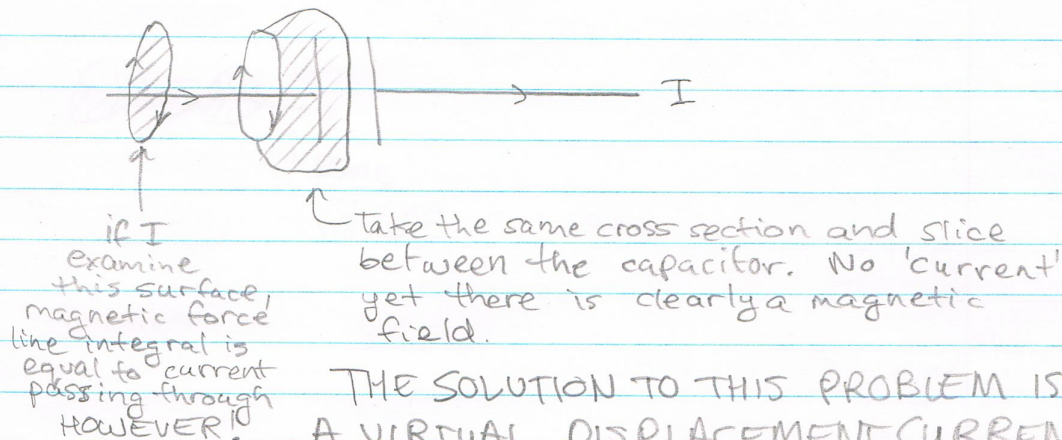 I
if I
examine
this surface,
magnetic force
line integral is
equal to current
passing through
HOWEVER!
Take the same cross section and slice
between the capacitor. No 'current'
yet there is clearly a magnetic
field.
THE SOLUTION TO THIS PROBLEM IS
A VIRTUAL DISPLACEMENT CURREN